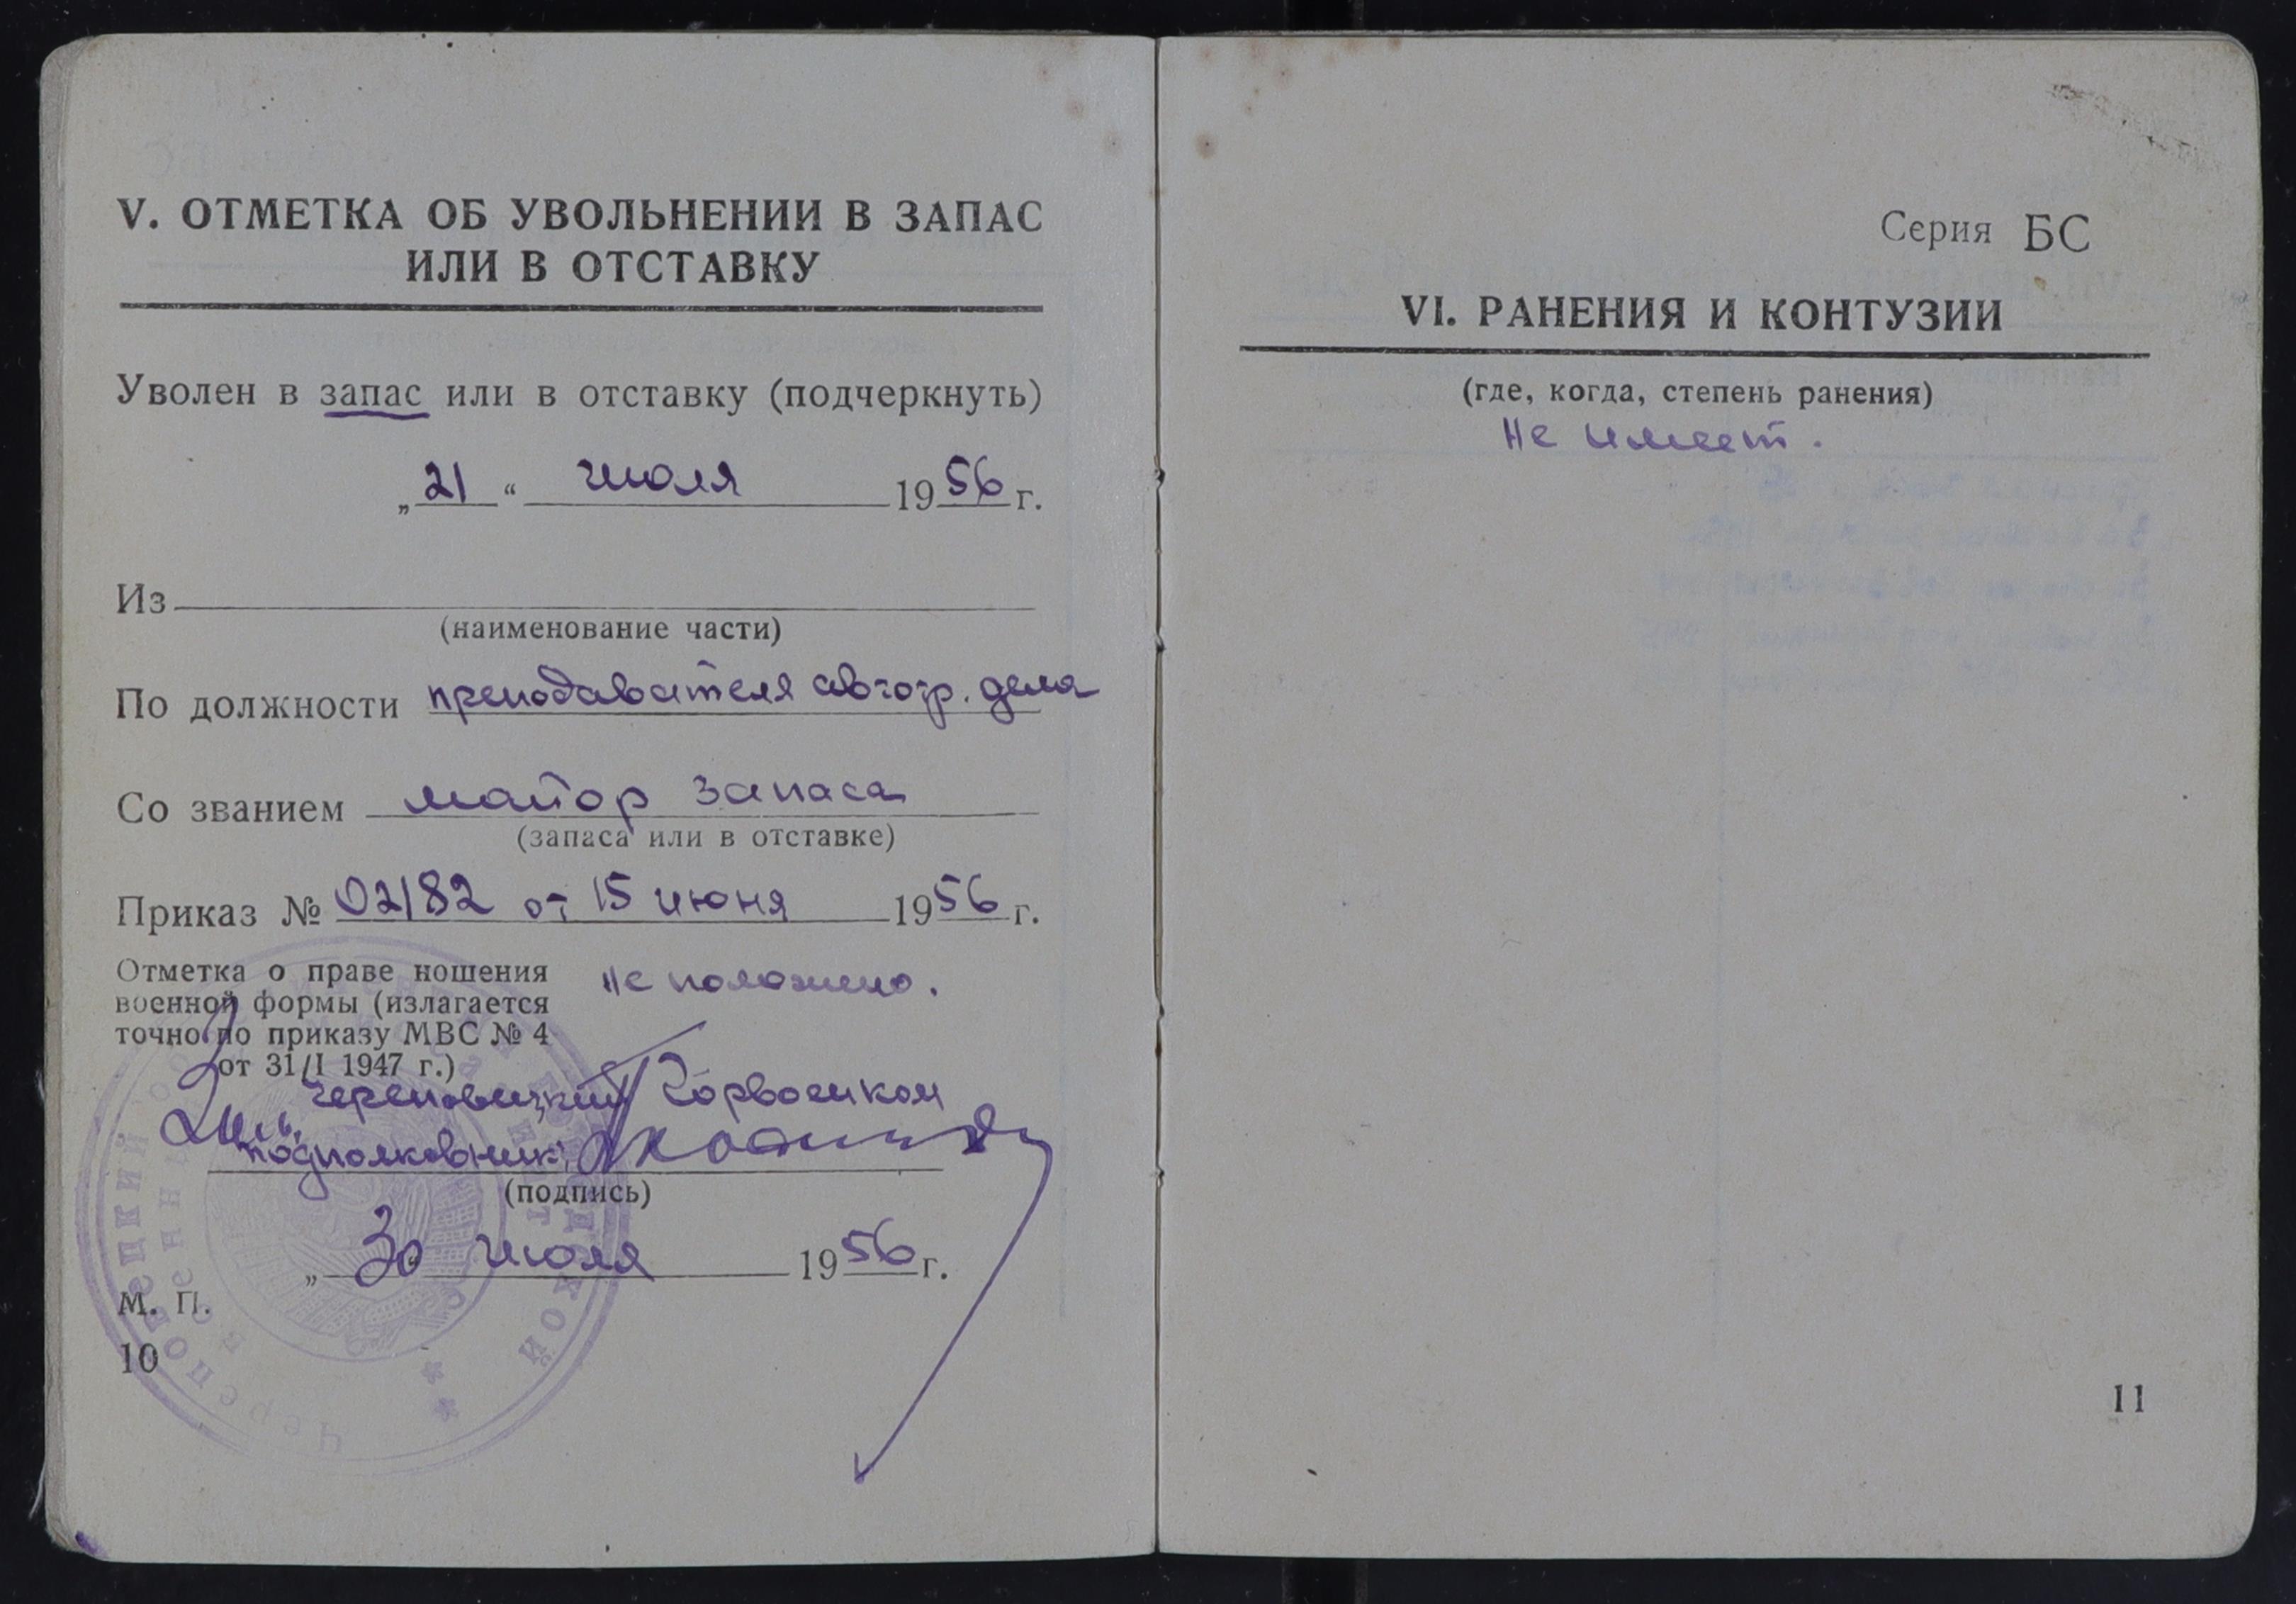 V. ОТМЕТКА ОБ УВОЛЬНЕНИИ В ЗАПАС
ИЛИ В ОТСТАВКУ
Уволен в запас или в отставку (подчеркнуть)
„21“ июля 1956 г.
Из
(наименование части)
По должности преподавателя автотр. дела
Со званием майор запаса
(запаса или в отставке)
Приказ № 02182 от 15 июня 1956 г.
Отметка о праве ношения
военной формы (излагается
точно по приказу МВС № 4
от 31/I 1947 г.)
не положено.
Череповецкий Горвоенком
подполковник
(подпись)
„30 июля 1956 г.
М. П.
10
Череповецкий
Серия БС
VI. РАНЕНИЯ И КОНТУЗИИ
(где, когда, степень ранения)
Не имеет.
11